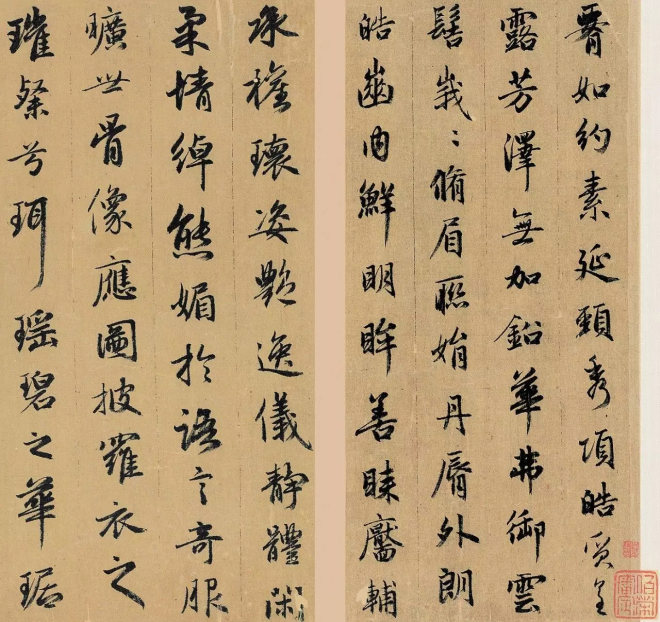 腰如約素延頸秀項皓質呈
露芳澤無加鉛華弗御雲
髻峩〻脩眉聮娟丹脣外朗
皓齒内鮮明眸善睞靨輔
承權瓌姿艷逸儀靜體閑
柔情綽態媚於語言奇服
曠世骨像應圖披羅衣之
璀粲兮珥瑤碧之華琚